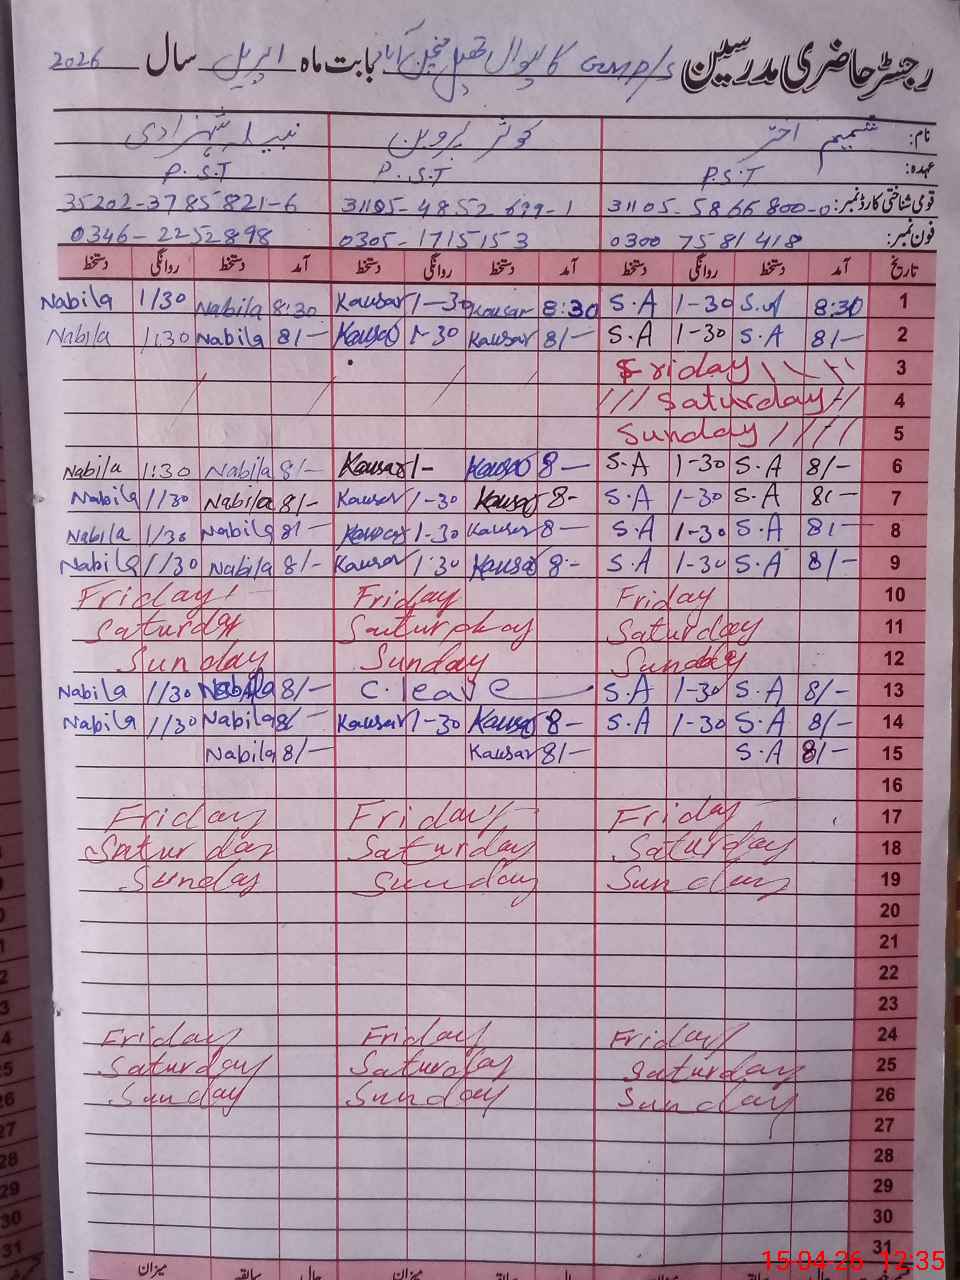 رجسٹر حاضری مدرسین GMP/S کالیوال تحصیل منچن آباد بابت ماہ اپریل سال 2026
نام: شمیم اختر کوثر پروین نبیلہ شہزادی
عہدہ: P.S.T P.S.T P.S.T
قومی شناختی کارڈ نمبر: 31105-5866800-0 31105-4852699-1 35202-3785821-6
فون نمبر: 0300 7581418 0305-1715153 0346-2252898
تاریخ آمد دستخط روانگی دستخط آمد دستخط روانگی دستخط آمد دستخط روانگی دستخط
1 8:30 S.A 1-30 S.A 8:30 Kausar 1-30 Kausar 8:30 Nabila 1/30 Nabila
2 8/- S.A 1-30 S.A 8/- Kausar 1-30 Kausar 8/- Nabila 1:30 Nabila
3 Friday
4 Saturday
5 Sunday
6 8/- S.A 1-30 S.A 8- Kausar 1- Kausar 8/- Nabila 1:30 Nabila
7 8/- S.A 1-30 S.A 8- Kausar 1-30 Kausar 8/- Nabila 1/30 Nabila
8 8/- S.A 1-30 S.A 8- Kausar 1-30 Kausar 8/- Nabila 1/30 Nabila
9 8/- S.A 1-30 S.A 8- Kausar 1:30 Kausar 8/- Nabila 1/30 Nabila
10 Friday Friday Friday
11 Saturday Saturday Saturday
12 Sunday Sunday Sunday
13 8/- S.A 1-30 S.A C.leave 8/- Nabila 1/30 Nabila
14 8/- S.A 1-30 S.A 8- Kausar 1-30 Kausar 8/- Nabila 1/30 Nabila
15 8/- S.A 8/- Kausar 8/- Nabila
16
17 Friday Friday Friday
18 Saturday Saturday Saturday
19 Sunday Sunday Sunday
20
21
22
23
24 Friday Friday Friday
25 Saturday Saturday Saturday
26 Sunday Sunday Sunday
27
28
29
30
31
حال سابقہ میزان حال سابقہ میزان
15-04-26 12:35